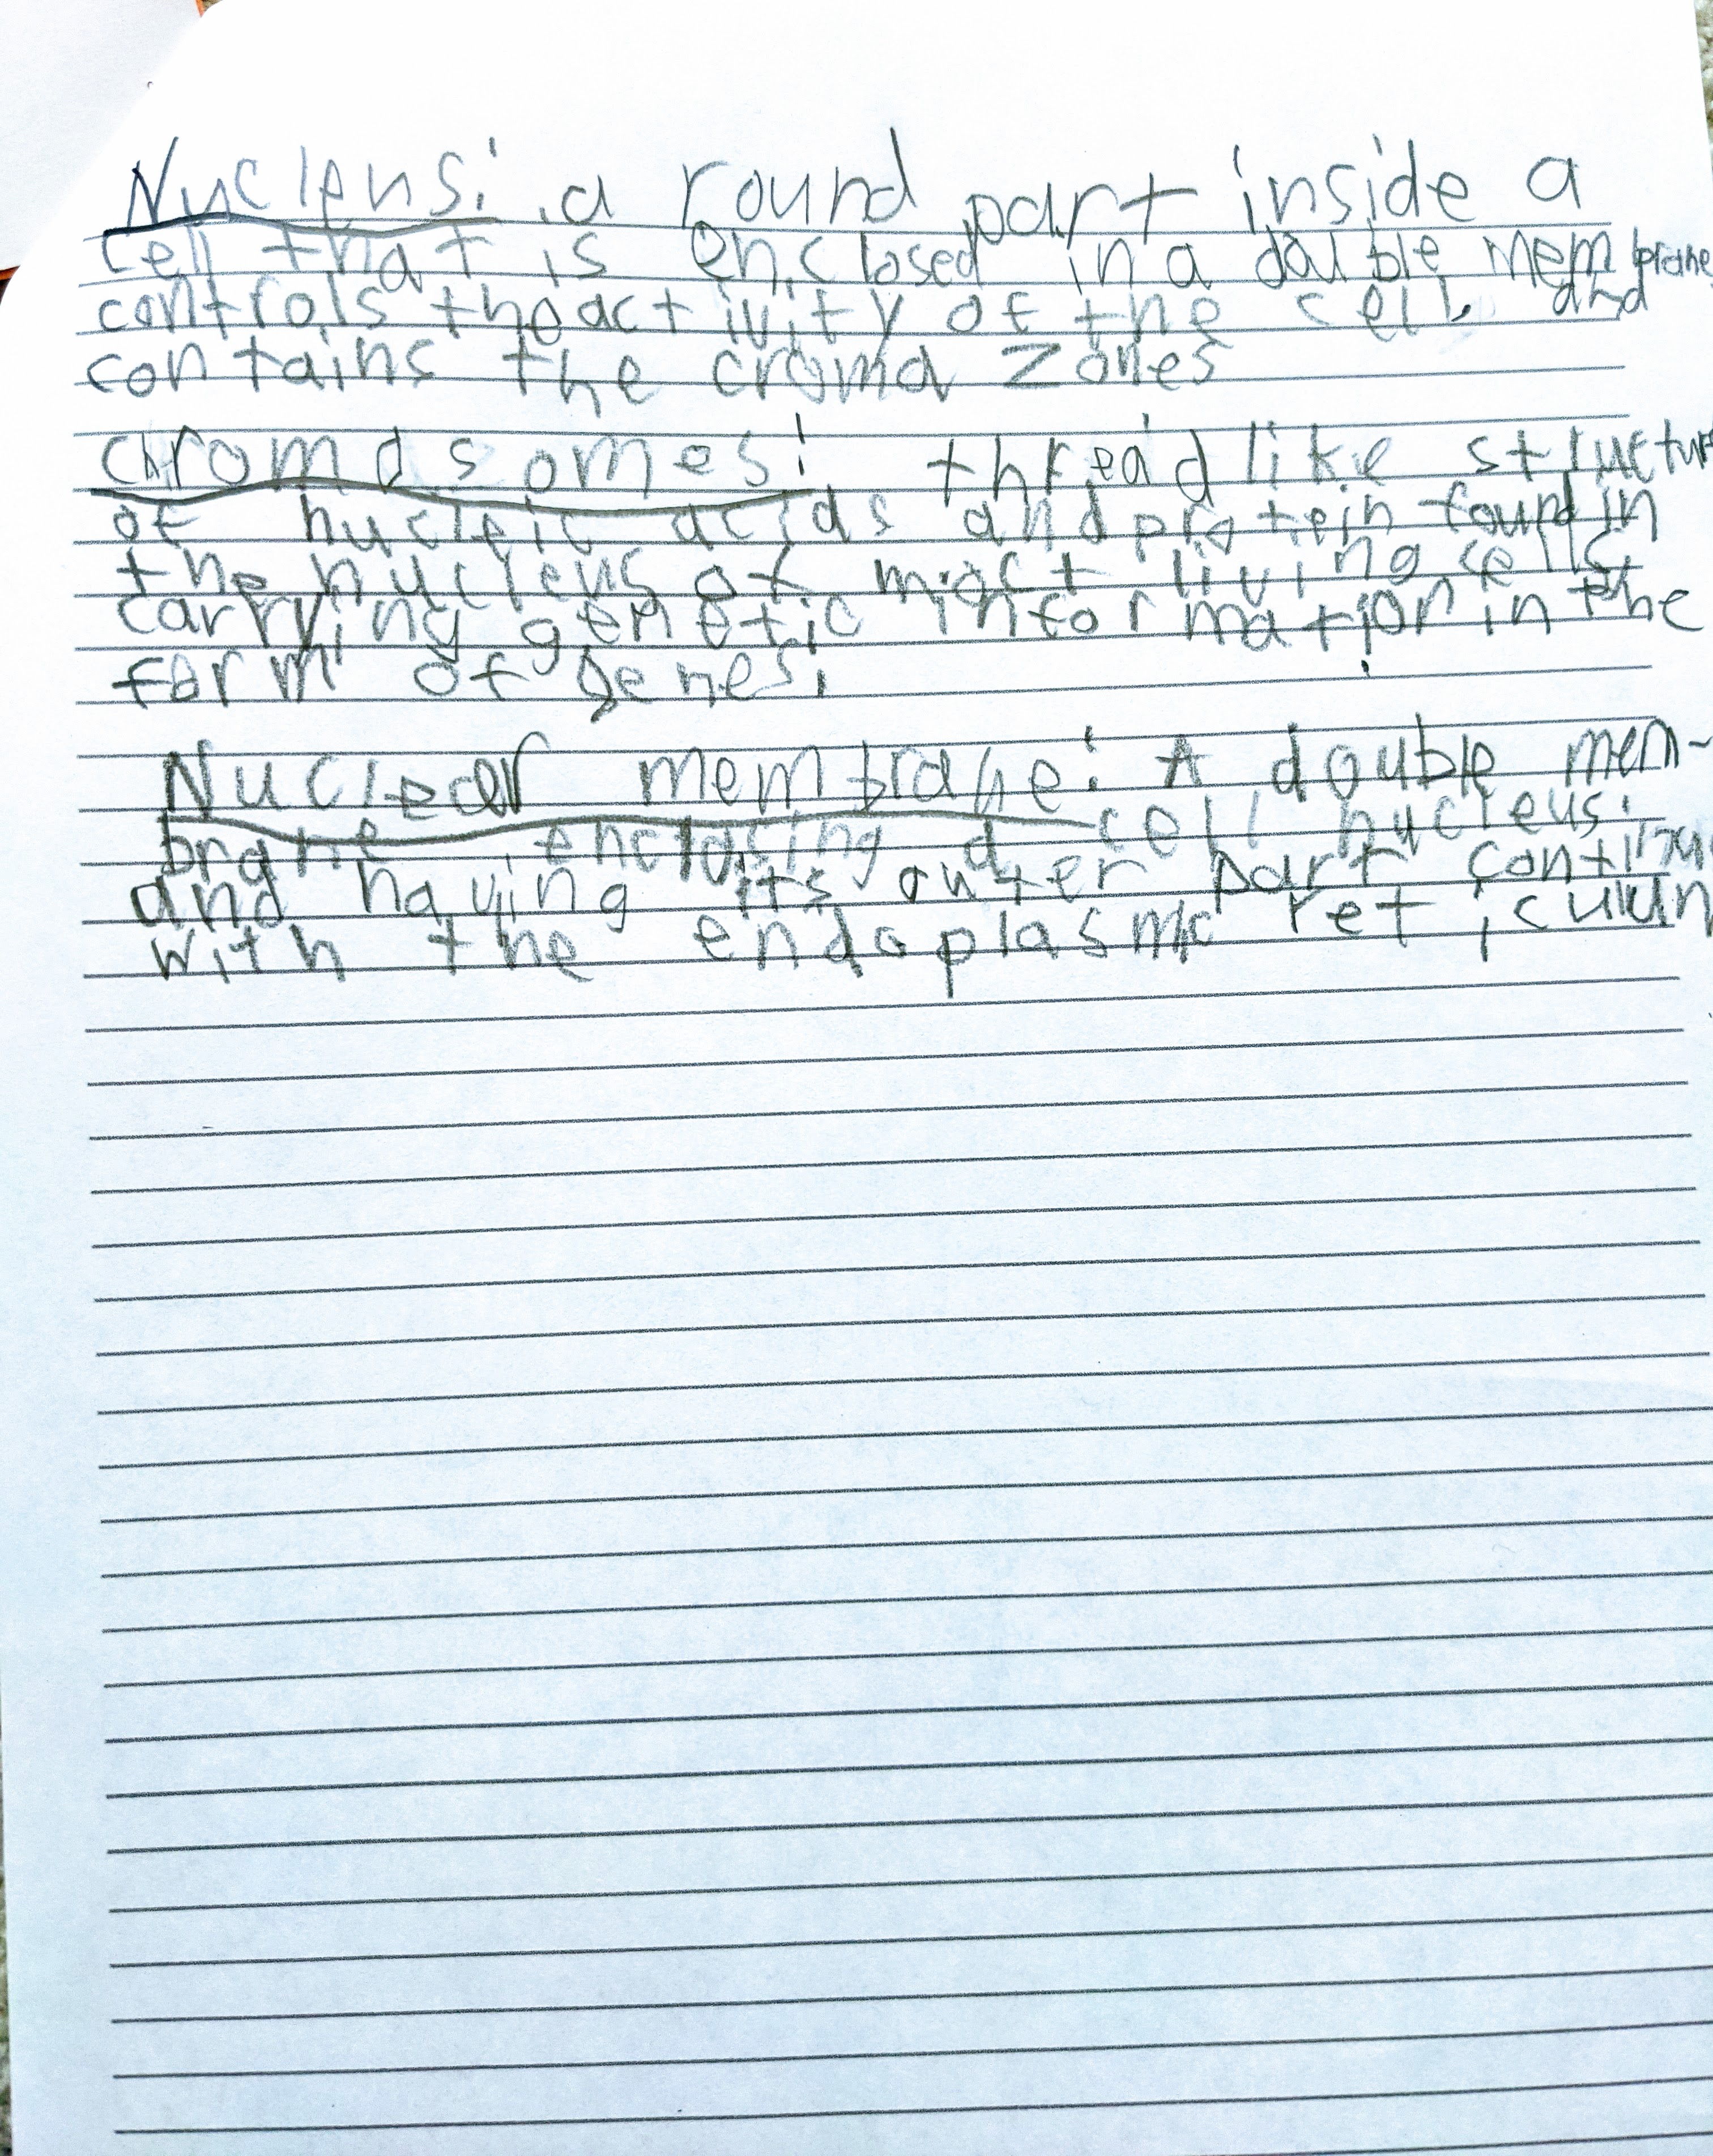 Nucleus: a round part inside a
cell that is enclosed in a double membrane,
controls the activity of the cell, and
contains the croma zones
chromosomes: thread like structur
of nucleic acids and protein found in
the nucleus of most living cells,
carrying genetic information in the
form of genes.
Nuclear membrane: A double mem-
brane enclosing a cell nucleus.
and having its outer part continu
with the endoplasmic reticulum